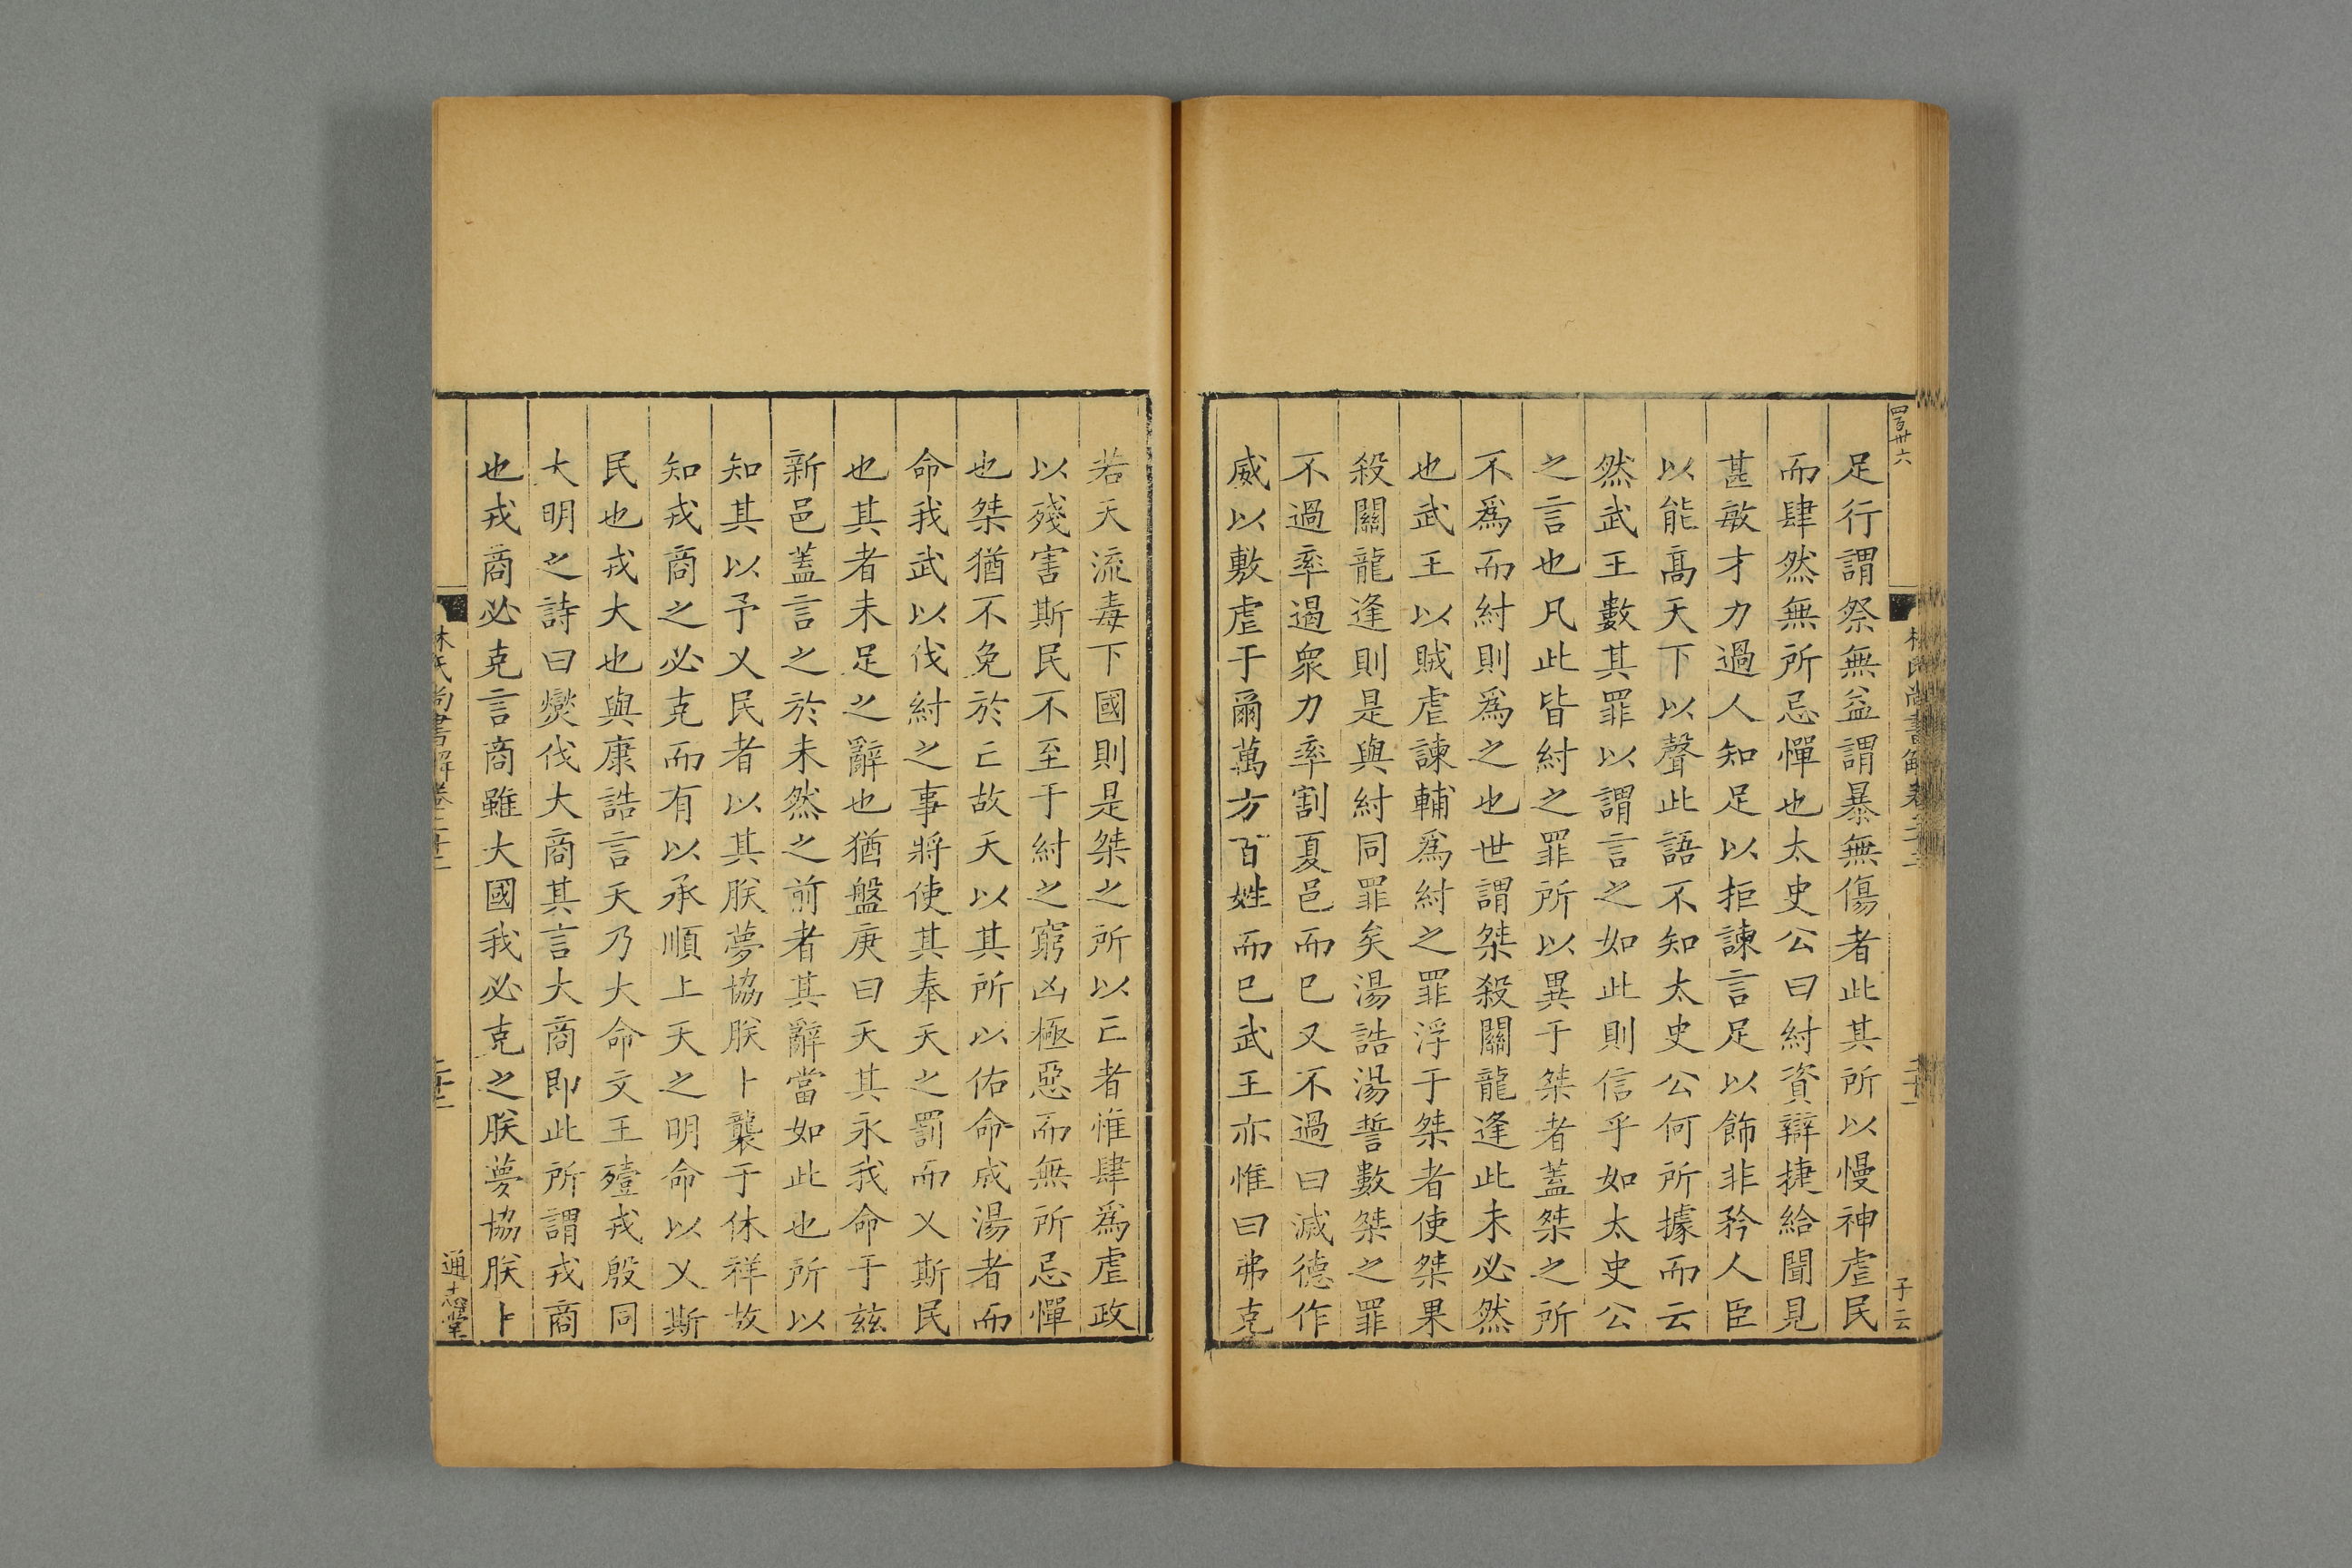 足行謂祭無益謂暴無傷者此其所以慢神虐民
而肆然無所忌憚也太史公曰紂資辯捷給聞見
甚敏才力過人知足以拒諫言足以飾非矜人臣
以能高天下以聲此語不知太史公何所據而云
然武王數其罪以謂言之如此則信乎如太史公
之言也凡此皆紂之罪所以異于桀者蓋桀之所
不爲而紂則爲之也世謂桀殺關龍逢此未必然
也武王以賊虐諫輔爲紂之罪浮于桀者使桀果
殺關龍逢則是與紂同罪矣湯誥湯誓數桀之罪
不過率遏衆力率割夏邑而已又不過曰滅德作
威以敷虐于爾萬方百姓而已武王亦惟曰弗克
若天流毒下國則是桀之所以亡者惟肆爲虐政
以殘害斯民不至于紂之窮凶極惡而無所忌憚
也桀猶不免於亡故天以其所以佑命成湯者而
命我武以伐紂之事將使其奉天之罰而乂斯民
也其者未足之辭也猶盤庚曰天其永我命于茲
新邑蓋言之於未然之前者其辭當如此也所以
知其以予乂民者以其朕夢協朕卜襲于休祥故
知戎商之必克而有以承順上天之明命以乂斯
民也戎大也與康誥言天乃大命文王殪戎殷同
大明之詩曰燮伐大商其言大商即此所謂戎商
也戎商必克言商雖大國我必克之朕夢協朕卜
林氏尚書解卷
通志堂